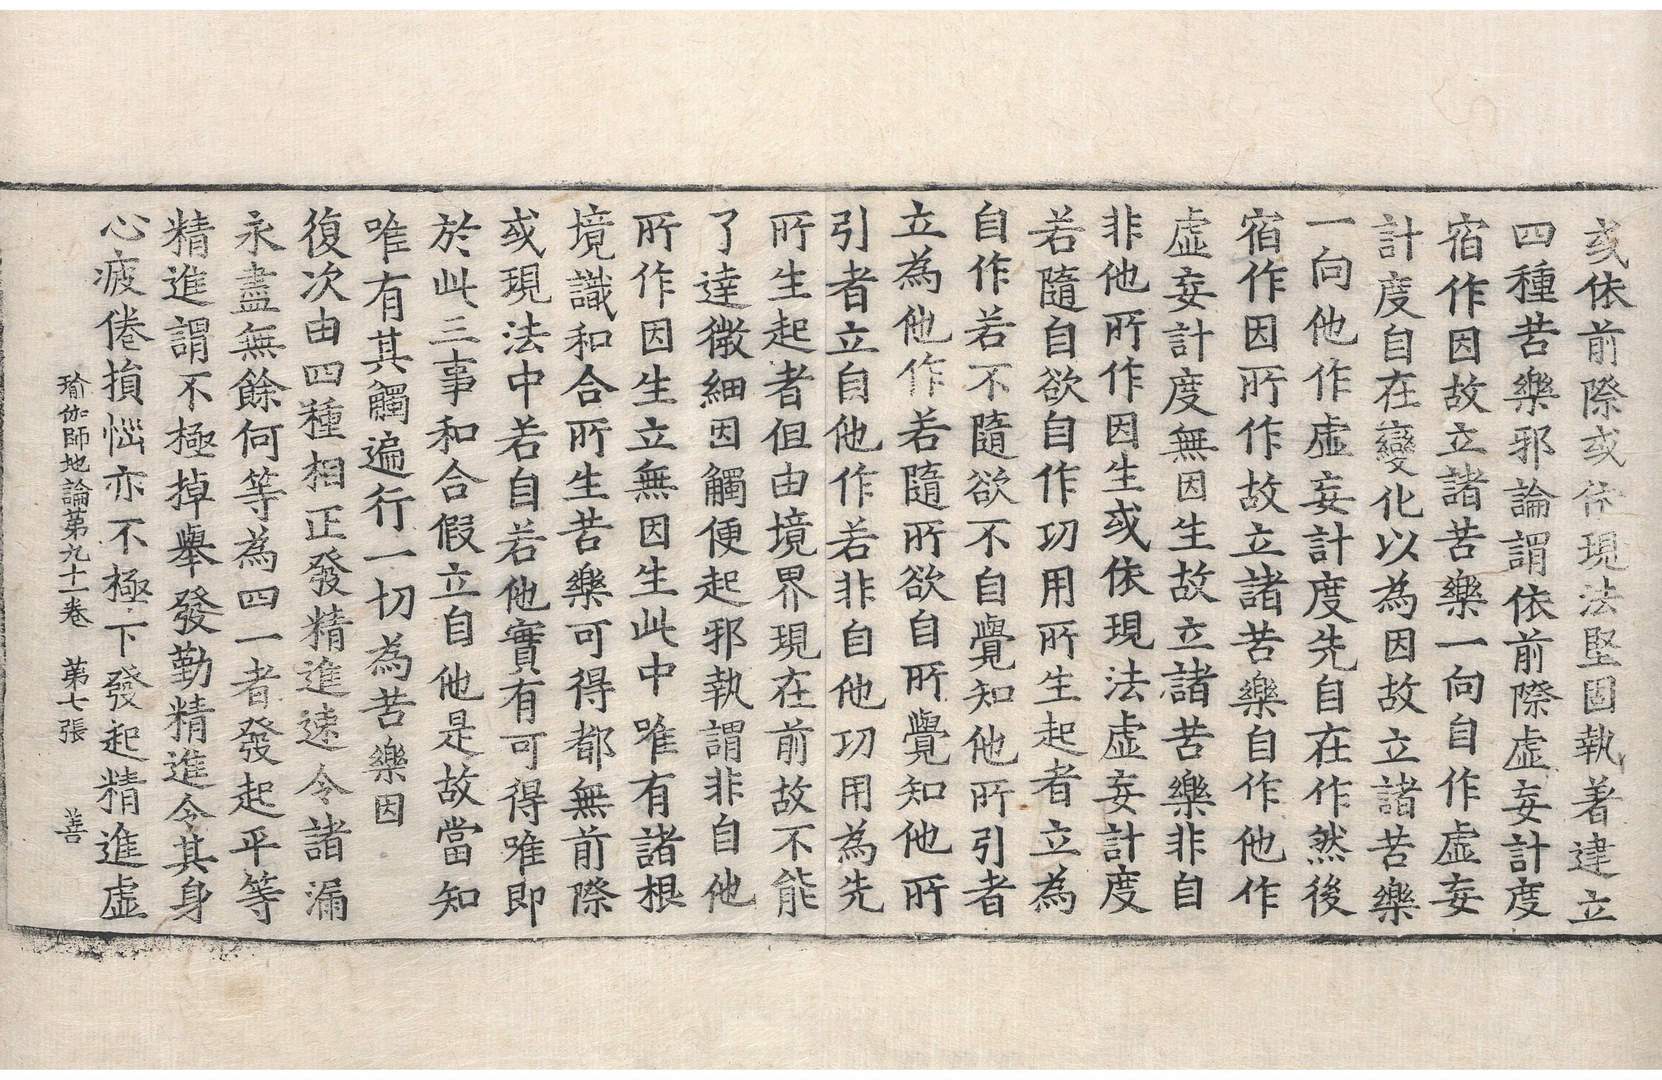 或依前際或依現法堅固執著建立
四種苦樂邪論謂依前際虛妄計度
宿作因故立諸苦樂一向自作虛妄
計度自在變化以為因故立諸苦樂
一向他作虛妄計度先自在作然後
宿作因所作故立諸苦樂自作他作
虛妄計度無因生故立諸苦樂非自
非他所作因生或依現法虛妄計度
若隨自欲自作功用所生起者立為
自作若不隨欲不自覺知他所引者
立為他作若隨所欲自所覺知他所
引者立自他作若非自他功用為先
所生起者但由境界現在前故不能
了達微細因觸便起邪執謂非自他
所作因生立無因生此中唯有諸根
境識和合所生苦樂可得都無前際
或現法中若自若他實有可得唯即
於此三事和合假立自他是故當知
唯有其觸遍行一切為苦樂因
復次由四種相正發精進速令諸漏
永盡無餘何等為四一者發起平等
精進謂不極掉舉發勤精進令其身
心疲倦損惱亦不極下發起精進虛
瑜伽師地論第九十一卷 第七張 善